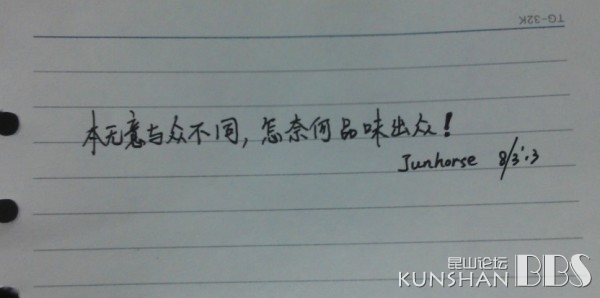 TG-32K
本无意与众不同，怎奈何品味出众！
Junhorse 8/3'.3
昆山论坛
KUNSHAN BBS